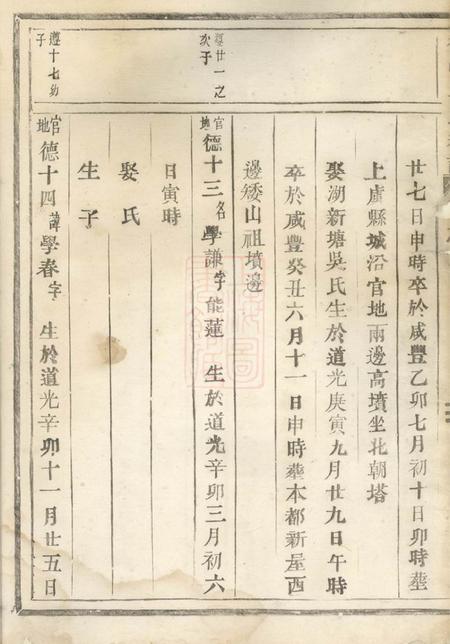 廿七日申時卒於咸豐乙卯七月初十日卯時塟
上虞縣城沿官地兩邊高墳坐北朝塔
娶湖新塘吳氏生於道光庚寅九月廿九日午時
卒於咸豐癸丑六月十一日申時塟本都新屋西
邊矮山祖墳邊
廿一之次子
官地德十三名學謙字能蓮 生於道光辛卯三月初六
日寅時
娶氏
生子
遵十七幼子
官地德十四諱學春字 生於道光辛卯十一月廿五日